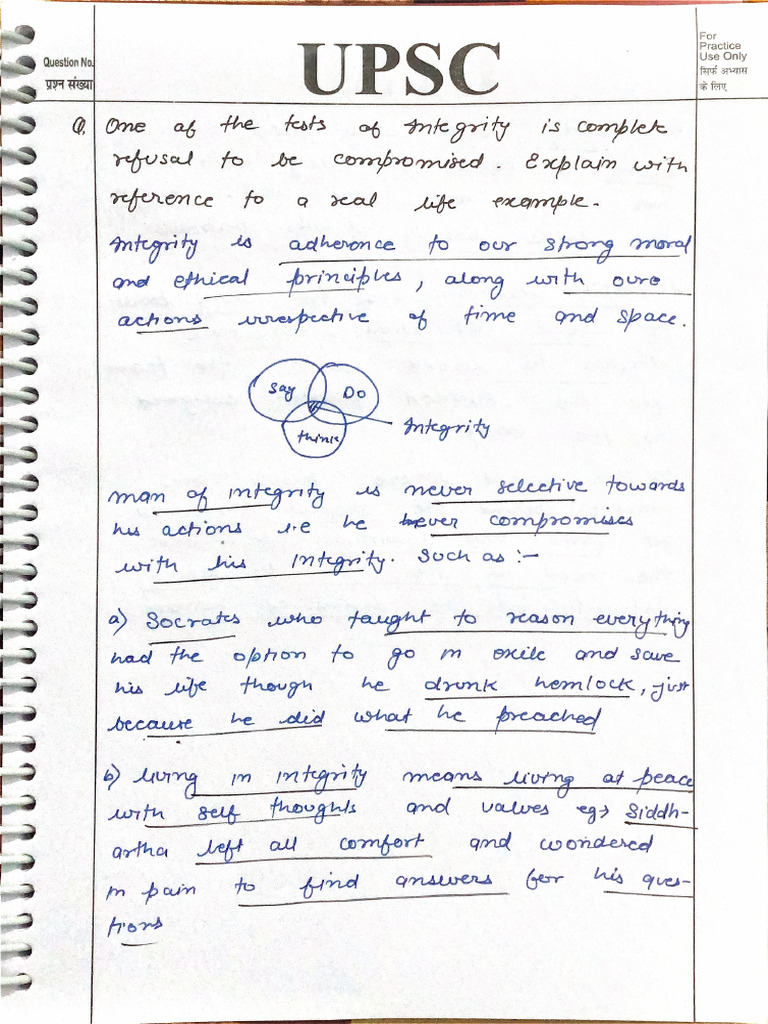 Question No.
प्रश्न संख्या
UPSC
For
Practice
Use Only
सिर्फ अभ्यास
के लिए
Q. One of the tests of Integrity is complete
refusal to be compromised. Explain with
reference to a real life example.
Integrity is adherence to our strong moral
and ethical principles, along with ours
actions irrespective of time and space.
Say
Do
think
Integrity
Man of integrity is never selective towards
his actions i.e he never compromises
with his Integrity. Such as :-
a) Socrates who taught to reason everything
had the option to go in exile and save
his life though he drunk hemlock, just
because he did what he preached
b) Living in integrity means living at peace
with self thoughts and values eg→ Siddh-
artha left all comfort and wondered
in pain to find answers for his ques-
tions